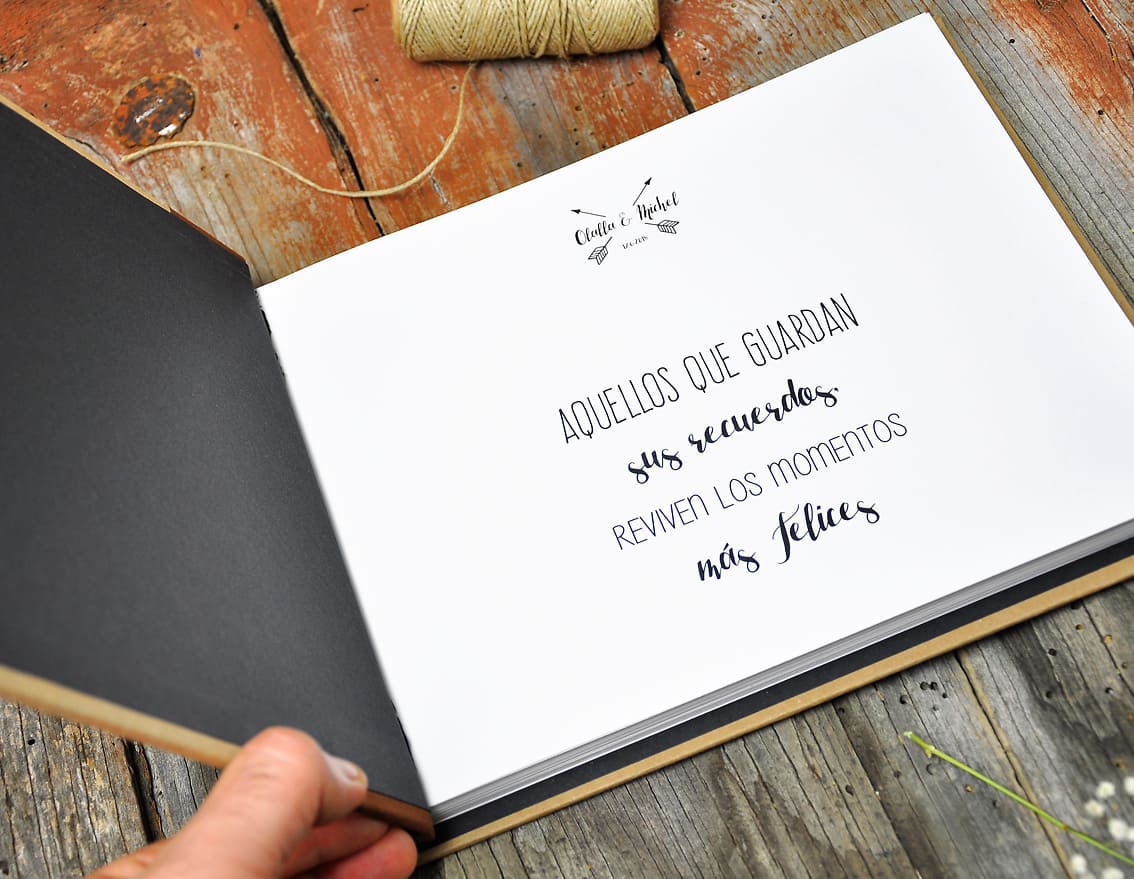 Olalla & Michel
AQUELLOS QUE GUARDAN
sus recuerdos,
REVIVEN LOS MOMENTOS
más felices